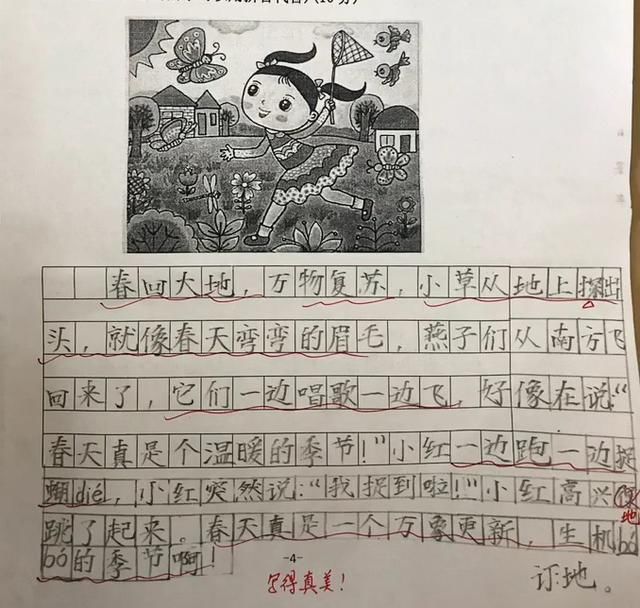 春回大地，万物复苏，小草从地上探出
头，就像春天弯弯的眉毛，燕子们从南方飞
回来了，它们一边唱歌一边飞，好像在说：“
春天真是个温暖的季节！”小红一边跑一边捉
蝴dié，小红突然说：“我捉到啦！”小红高兴
地
跳了起来。春天真是一个万象更新，生机bó
bó的季节啊！
-4-
写得真美！
订：地。